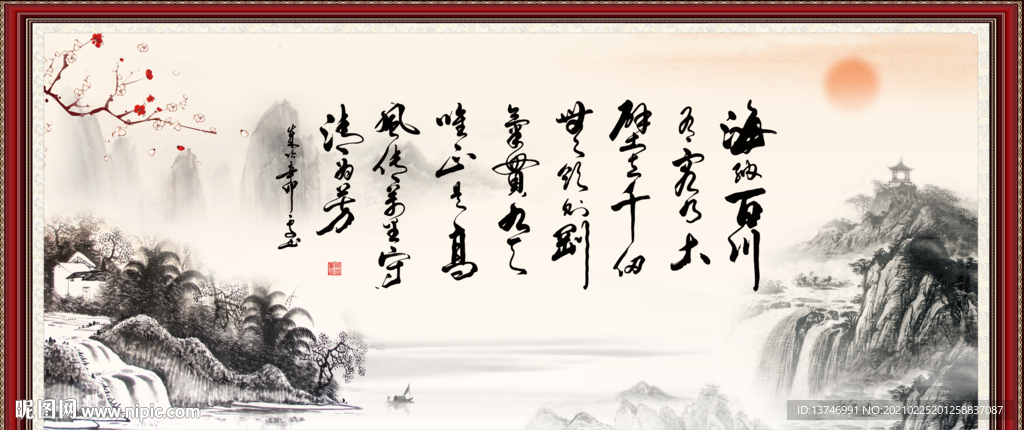 海納百川
有容乃大
壁立千仞
無欲則剛
氣貫九天
唯正是高
風傳萬里守
清為芳
辛卯
昵图网 www.nipic.com
ID:13746991 NO:20210225201258837087